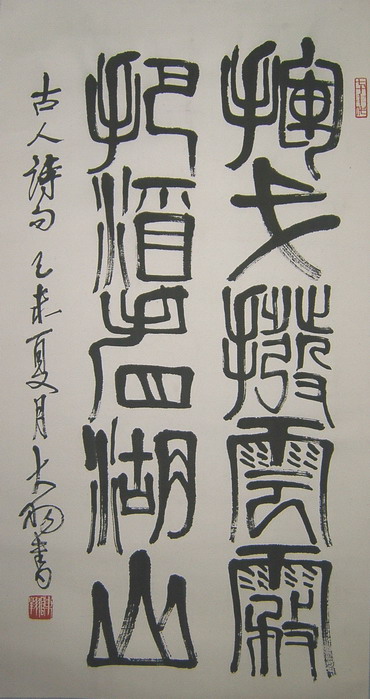 揮戈撥雲霧
把酒看湖山
古人詩句 乙未夏月 大 書